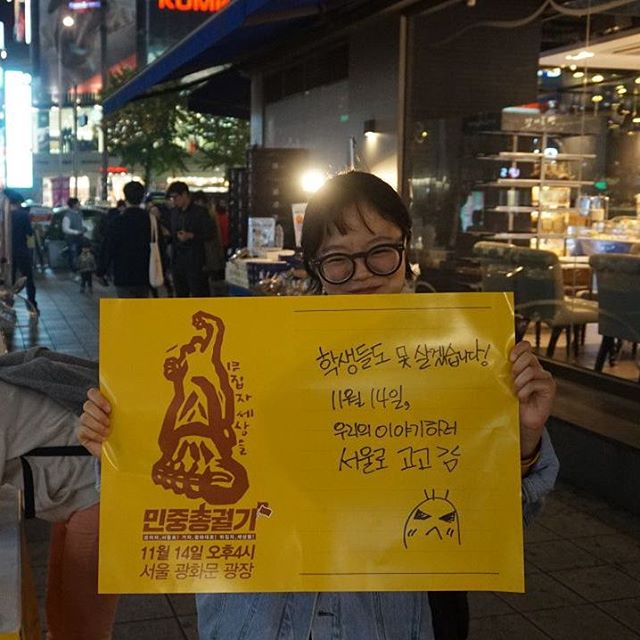 KUMK
뒤집자 세상을
민중총궐기
11월 14일 오후4시
서울 광화문 광장
학생들도 못 살겠습니다!
11월 14일,
우리의 이야기하러
서울로 고고 감